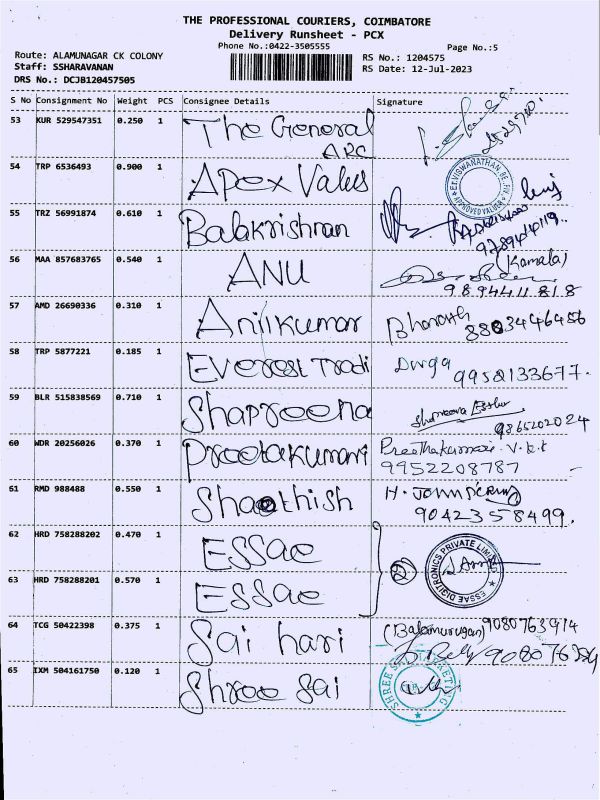 THE PROFESSIONAL COURIERS, COIMBATORE
Delivery Runsheet - PCX
Phone No.:0422-3505555
Page No.:5
Route: ALAMUNAGAR CK COLONY
Staff: SSHARAVANAN
DRS No.: DCJB120457505
RS No.: 1204575
RS Date: 12-Jul-2023
S No Consignment No Weight PCS Consignee Details Signature
53 KUR 529547351 0.250 1 The General
ARC
54 TRP 6536493 0.900 1 Apex Values
APPROVED VALUER
55 TRZ 56991874 0.610 1 Balakrishnan
56 MAA 857683765 0.540 1 ANU (Kamala)
9894411818
57 AMD 26690336 0.310 1 Anilkumar Bharath 8803446486
58 TRP 5877221 0.185 1 Everest Tradi Durga
9952133677.
59 BLR 515838569 0.710 1 Shapreena
9865202024
60 WDR 20256026 0.370 1 Preetakumari Preethakumari. V.k.t
9952208787
61 RMD 988488 0.550 1 Shaethish
9042358499.
62 HRD 758288202 0.470 1 ESSae
2
ESSAE DIGITRONICS PRIVATE LIMITED
63 HRD 758288201 0.570 1 ESSae
64 TCG 50422398 0.375 1 Sai hari (Balamurugan) 9080763914
65 IXM 504161750 0.120 1 Shree Sai